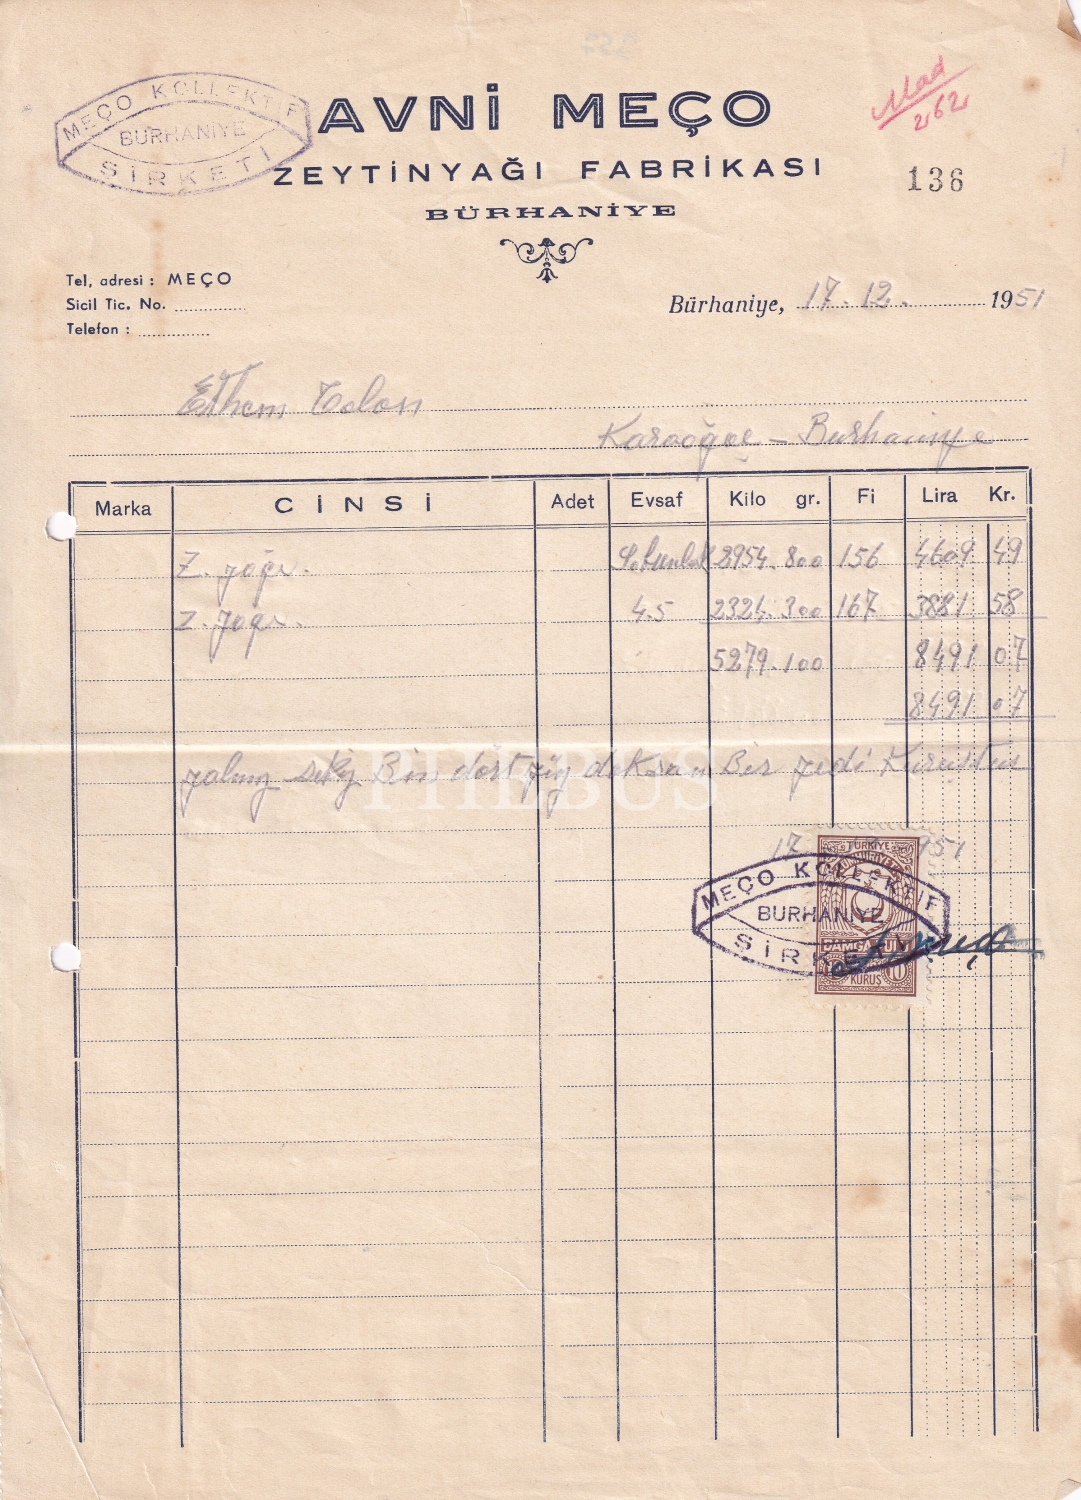 MEÇO KOLLEKTİF
BURHANİYE
ŞİRKETİ
AVNİ MEÇO
ZEYTİNYAĞI FABRİKASI
BÜRHANİYE
Mad
262
136
Tel, adresi : MEÇO
Sicil Tic. No.
Telefon :
Bürhaniye, 17.12. 1951
Ethem
Karaağaç - Burhaniye
Marka CİNSİ Adet Evsaf Kilo gr. Fi Lira Kr.
Z. yağı. Sabunluk 2954.800 156 4609 49
Z. yağı. 4.5 2324.300 167 3881 58
5279.100 8491 07
8491 07
yalnız sekiz Bin dört yüz doksan Bir yedi Kuruştur
PHEBUS
17 12 951
TÜRKİYE
CUMHURİYETİ
DAMGA PULU
10
KURUŞ
MEÇO KOLLEKTİF
BURHANİYE
ŞİRKETİ